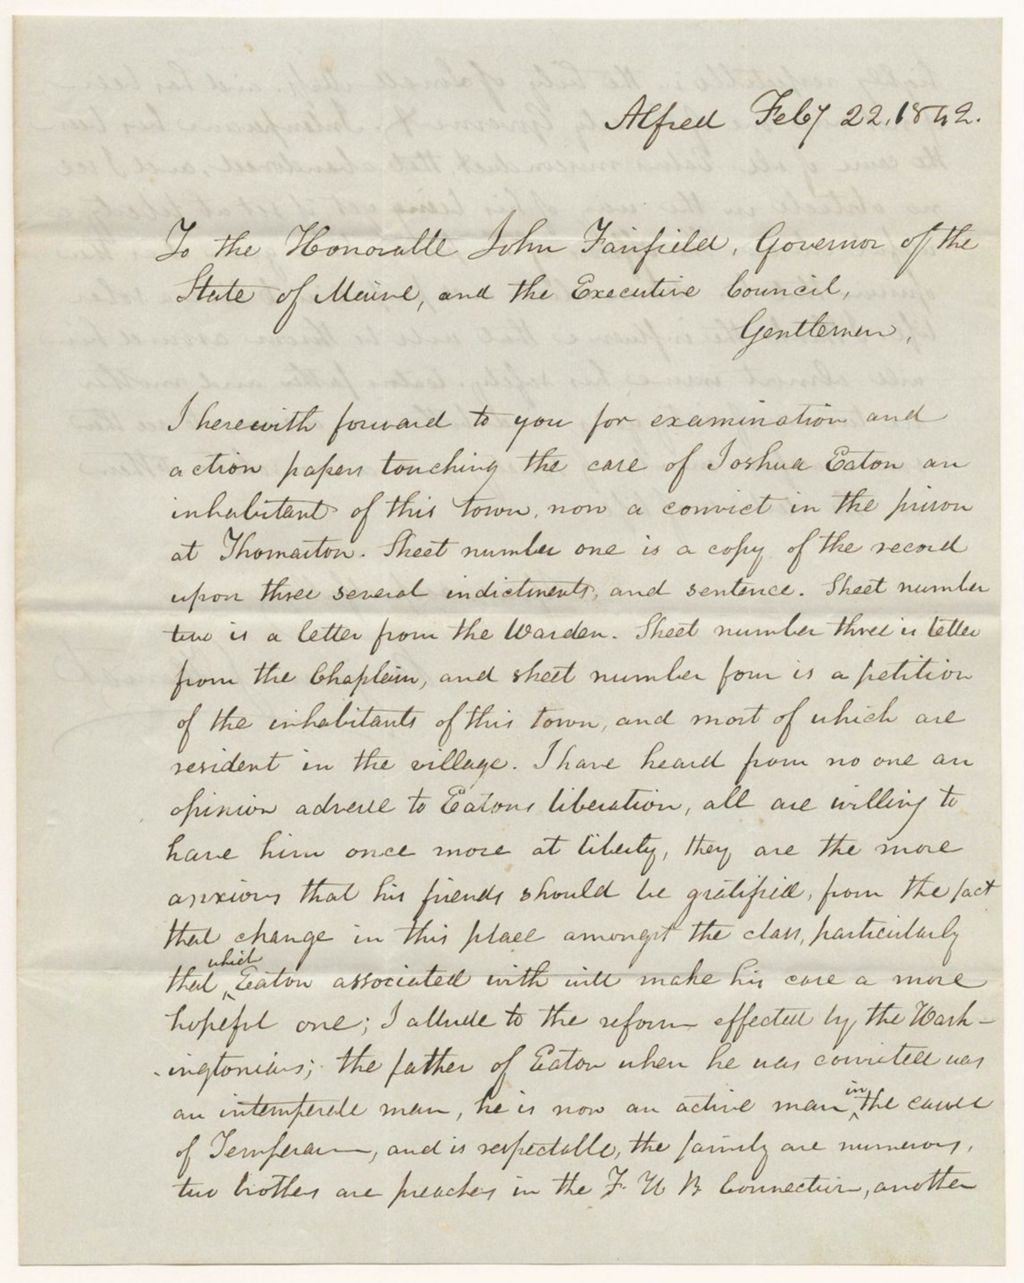 Alfred Feby 22, 1842.
To the Honorable John Fairfield, Governor of the
State of Maine, and the Executive Council,
Gentlemen,
I herewith forward to you for examination and
action papers touching the case of Joshua Eaton an
inhabitant of this town, now a convict in the prison
at Thomaston. Sheet number one is a copy of the record
upon three several indictments, and sentence. Sheet number
two is a letter from the Warden. Sheet number three is letter
from the Chaplain, and sheet number four is a petition
of the inhabitants of this town, and most of which are
resident in the village. I have heard from no one an
opinion adverse to Eatons liberation, all are willing to
have him once more at liberty, they are the more
anxious that his friends should be gratified, from the fact
that change in this place amongst the class, particularly
that which Eaton associated with will make his case a more
hopeful one; I allude to the reform effected by the Wash-
-ingtonians; the father of Eaton when he was convicted was
an intemperate man, he is now an active man in the cause
of Temperance, and is respectable, the family are numerous,
two brothers are preachers in the F. W. B Connection, another